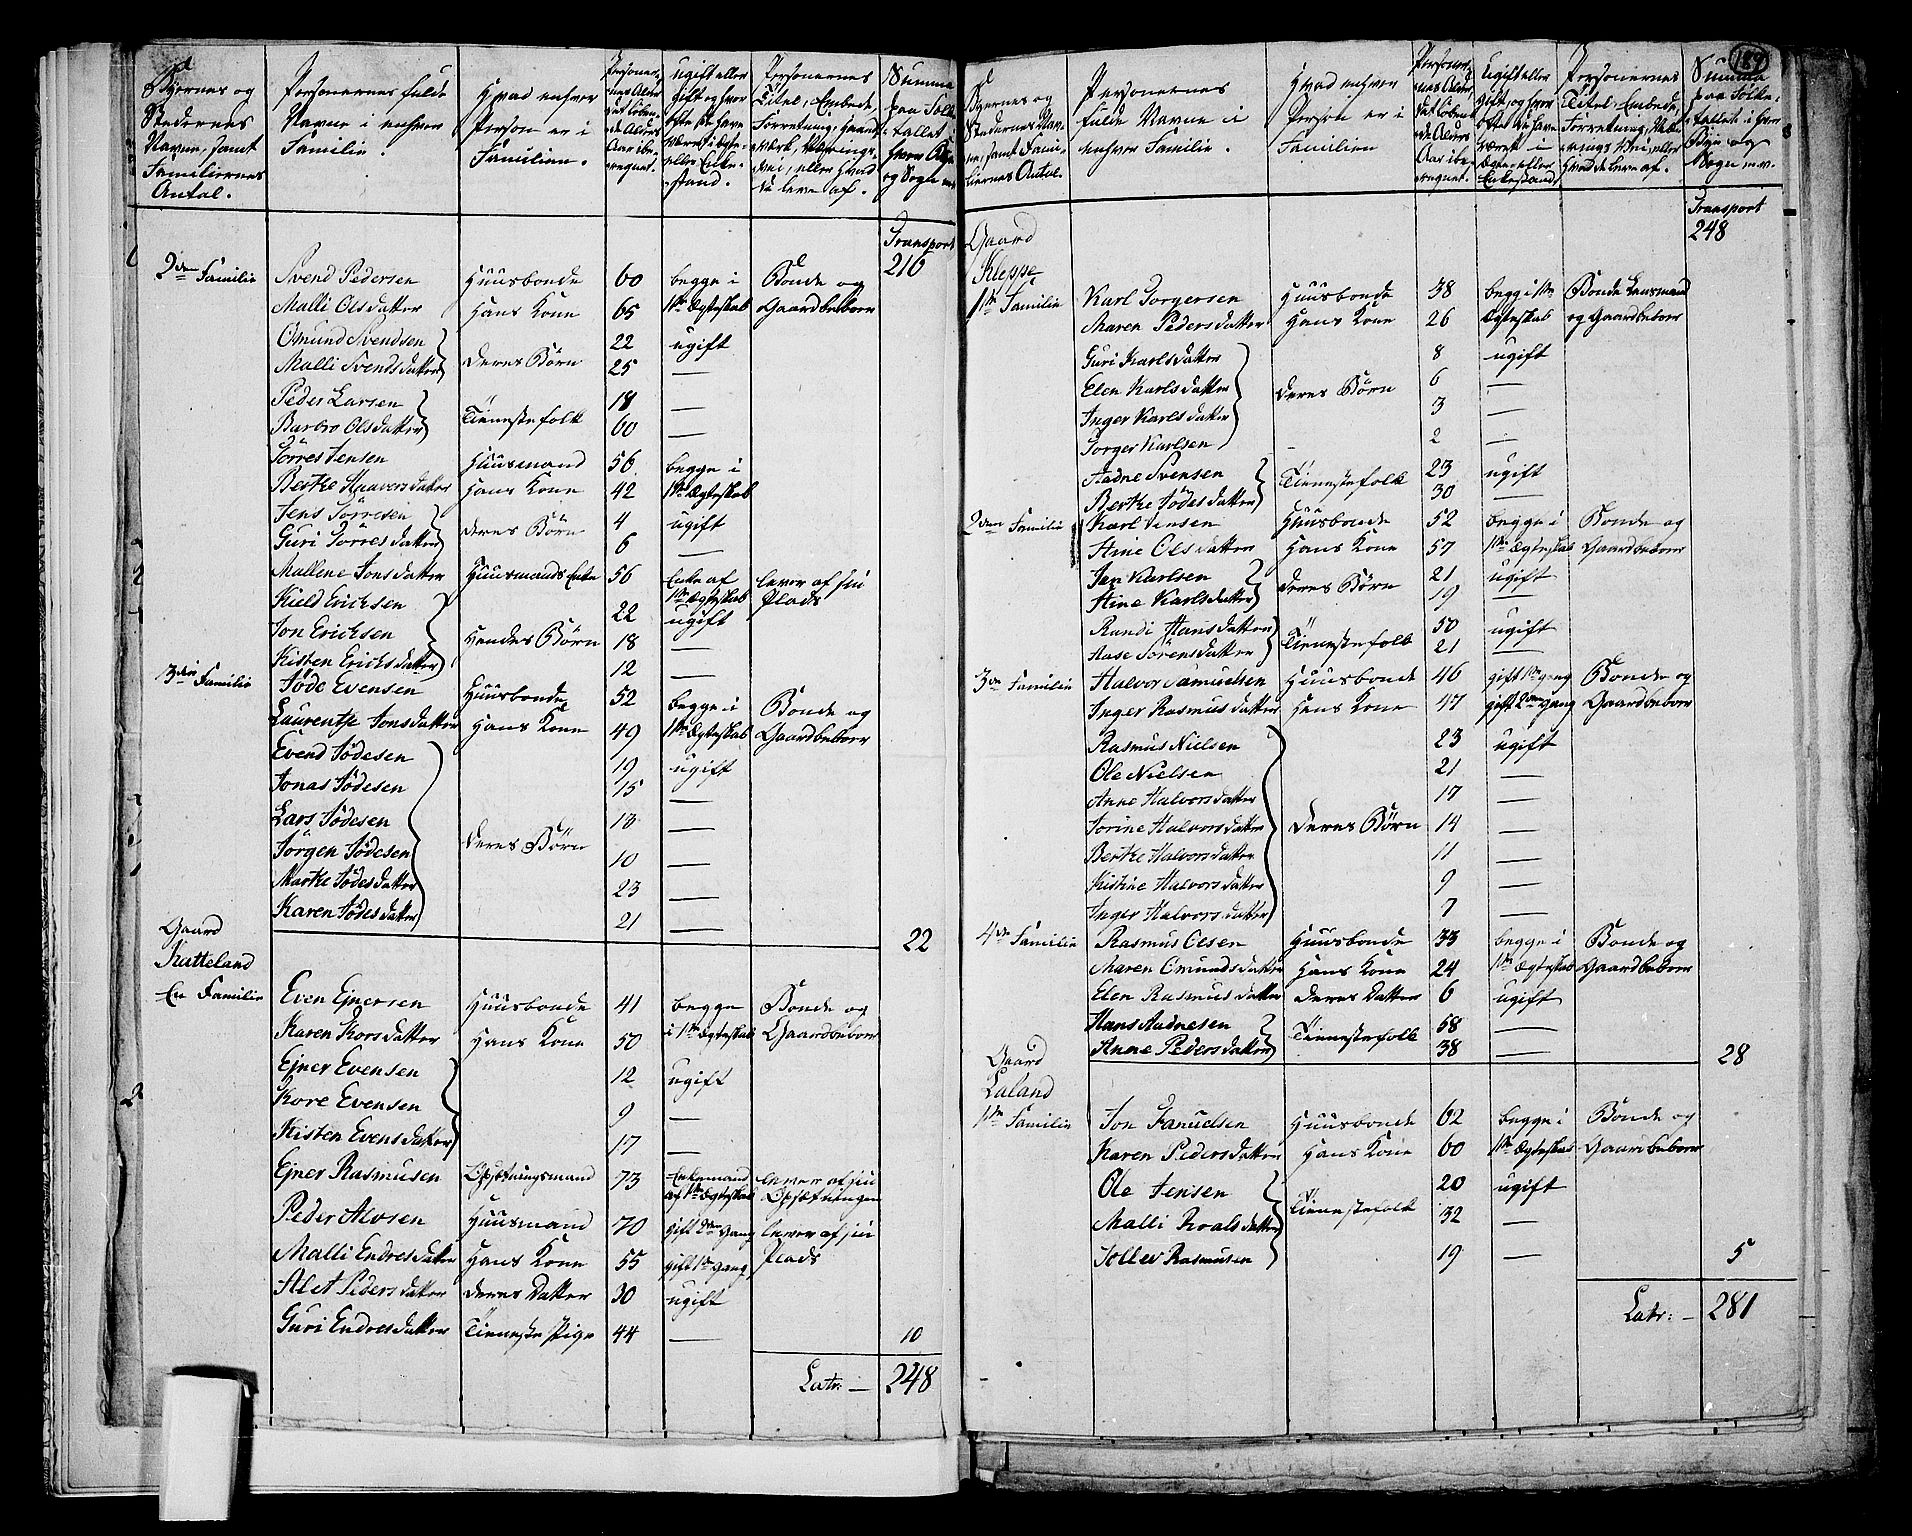 Byernes og Stedernes Navne, samt Familiernes Antal.
Personernes fulde Navne i enhver Familie.
Hvad enhver Person er i Familien.
Personernes Alder, det løbende Alders Aar iberegnet.
ugift eller gift, og hvor ofte de have været i Ægte- eller Enkestand.
Personernes Titel, Embede, Forretning, Haandværk, Næringsvei, eller hvad de leve af.
Summa paa Folketallet i hver Bye og Sogn
Transport 216
2den Familie Svend Pedersen Huusbonde 60 begge i Bonde og
Malli Olsdatter Hans Kone 65 1ste Ægteskab Gaardbeboer
Omund Svendsen 22 ugift
Malli Svendsdatter deres Börn 25 —
Peder Larsen 18 —
Barbro Olsdatter Tienestefolk 60 —
Törres Jensen Huusmand 56 begge i
Berthe Haavorsdatter Hans Kone 42 1ste Ægteskab
Jens Törresen 4 ugift
Guri Törresdatter deres Börn 6 —
Mallene Jonsdatter Huusmands Enke 56 Enke af 1ste Ægteskab lever af sin Plads
Kield Ericksen 22 ugift
Jon Ericksen Hendes Börn 18 —
Kisten Ericksdatter 12 —
3die Familie Töde Evensen Huusbonde 52 begge i Bonde og
Laurentse Jonsdatter Hans Kone 49 1ste Ægteskab Gaardbeboer
Evend Tödesen 19 ugift
Jonas Tödesen 15 —
Lars Tödesen 13 —
Jörgen Tödesen deres Börn 10 —
Marthe Tödesdatter 23 —
Karen Tödesdatter 21 —
22
Gaard
Katteland
En Familie Even Ejnersen Huusbonde 41 begge Bonde og
Karen Korsdatter Hans Kone 50 i 1ste Ægteskab Gaardbeboer
Ejner Evensen 12 ugift
Kore Evensen 9 —
Kisten Evensdatter 17 —
Ejner Rasmusen Opsætningsmand 73 Enkemand af 1ste Ægteskab lever af sin Opsætningen
Peder Alvsen Huusmand 70 gift 2den gang lever af sin
Malli Endresdatter Hans Kone 55 gift 1ste gang Plads
Alet Pedersdatter deres Datter 30 ugift
Guri Endresdatter Tieneste Pige 44 — 10
Latr: — 248
189
Byernes og Stedernes Navne, samt Familiernes Antal.
Personernes fulde Navne i enhver Familie.
Hvad enhver Person er i Familien
Personernes Alder, det løbende Alders Aar iberegnet.
Ugift eller gift, og hvor ofte de have været i Ægte- eller Enkestand
Personernes Titel, Embede, Forretning, Næringsvei, eller hvad de leve af.
Summa paa Folketallet i hver Bye og Sogn
Transport 248
Gaard
Kleppe
1ste Familie Karl Torgersen Huusbonde 38 begge i 1ste Bonde Lensmand
Maren Pedersdatter Hans Kone 26 Ægteskab og Gaardbeboer
Guri Karlsdatter 8 ugift
Elen Karlsdatter deres Börn 6 —
Inger Karlsdatter 3 —
Torger Karlsen 2 —
Aadne Svensen Tienestefolk 23 ugift
Berthe Tödesdatter 30 —
2den Familie Karl Jensen Huusbonde 52 begge i Bonde og
Stine Olsdatter Hans Kone 57 1ste Ægteskab Gaardbeboer
Jen Karlsen deres Börn 21 ugift
Stine Karlsdatter 19 —
Randi Hansdatter Tienestefolk 50 ugift
Aase Sörensdatter 21 —
3die Familie Halvor Samuelsen Huusbonde 46 gift 1ste gang Bonde og
Inger Rasmusdatter Hans Kone 47 gift 2den gang Gaardbeboer
Rasmus Nielsen 23 ugift
Ole Nielsen 21 —
Anne Halvorsdatter 17 —
Torine Halvorsdatter deres Börn 14 —
Berthe Halvorsdatter 11 —
Kistine Halvorsdatter 9 —
Inger Halvorsdatter 7 —
4de Familie Rasmus Olsen Huusbonde 33 begge i Bonde og
Maren Omundsdatter Hans Kone 24 1ste Ægteskab Gaardbeboer
Elen Rasmusdatter deres Datter 6 ugift
Hans Aadnesen Tienestefolk 58 —
Anne Pedersdatter 38 —
28
Gaard
Laland
1ste Familie Jon Samuelsen Huusbonde 62 begge i Bonde og
Karen Pedersdatter Hans Kone 60 1ste Ægteskab Gaardbeboer
Ole Jensen 20 ugift
Malli Roalsdatter Tienestefolk 32 —
Tollev Rasmusen 19 — 5
Latr: — 281